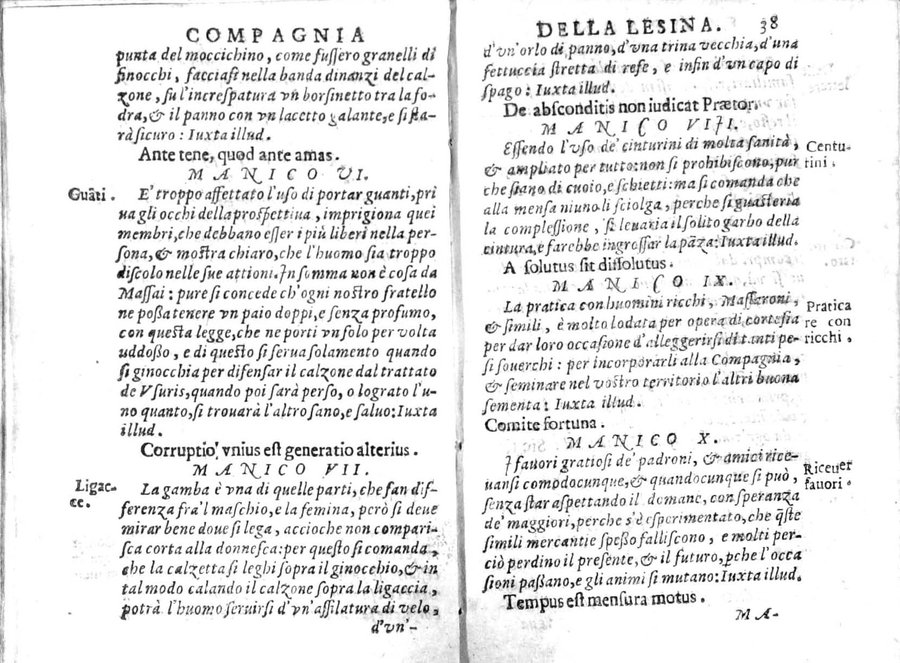 COMPAGNIA
punta del moccichino, come fussero granelli di
finocchi, facciasi nella banda dinanzi del cal-
zone, su l'increspatura vn borsinetto tra la fo-
dra, & il panno con vn lacetto galante, e si sta-
rà sicuro: Iuxta illud.
Ante tene, quod ante amas.
MANICO VI.
Guãti.
E' troppo affettato l'uso di portar guanti, pri
ua gli occhi della prospettiua, imprigiona quei
membri, che debbano esser i più liberi nella per-
sona, & mostra chiaro, che l'huomo sia troppo
discolo nelle sue attioni. In somma non è cosa da
Massai: pure si concede ch'ogni nostro fratello
ne possa tenere vn paio doppi, e senza profumo,
con questa legge, che ne porti vn solo per volta
uddosso, e di questo si serua solamento quando
si ginocchia per difensar il calzone dal trattato
de Vsuris, quando poi sarà perso, o lograto l'u-
no quanto, si trouarà l'altro sano, e saluo: Iuxta
illud.
Corruptio vnius est generatio alterius.
MANICO VII.
Ligac-
ce.
La gamba è vna di quelle parti, che fan dif-
ferenza fra'l maschio, e la femina, però si deue
mirar bene doue si lega, accioche non compari-
sca corta alla donnesca: per questo si comanda,
che la calzetta si leghi sopra il ginocchio, & in
tal modo calando il calzone sopra la ligaccia,
potrà l'huomo seruirsi d'vn'assilatura di velo,
d'vn'-
DELLA LESINA. 38
d'vn'orlo di panno, d'vna trina vecchia, d'una
fettuccia stretta di refe, e infin d'vn capo di
spago: Iuxta illud.
De absconditis non iudicat Prætor.
MANICO VIII.
Centu-
rini.
Essendo l'vso de' cinturini di molta sanità,
& ampliato per tutto: non si prohibiscono, pur
che siano di cuoio, e schietti: ma si comanda che
alla mensa niuno li sciolga, perche si guasteria
la complessione, si leuaria il solito garbo della
cintura, e farebbe ingrossar la pãza: Iuxta illud.
A solutus sit dissolutus.
MANICO IX.
Pratica
re con
ricchi,
La pratica con huomini ricchi, Massaroni,
& simili, è molto lodata per opera di cortesia
per dar loro occasione d'alleggerirsi di tanti pe-
si souerchi: per incorporarli alla Compagnia,
& seminare nel vostro territorio l'altri buona
sementa: Iuxta illud.
Comite fortuna.
MANICO X.
Riceuer
fauori.
I fauori gratiosi de' padroni, & amici rice-
uansi comodocunque, & quandocunque si può,
senza star aspettando il domane, con speranza
de' maggiori, perche s'è esperimentato, che q̃ste
simili mercantie spesso falliscono, e molti per-
ciò perdino il presente, & il futuro, ꝑche l'occa
sioni passano, e gli animi si mutano: Iuxta illud.
Tempus est mensura motus.
MA-